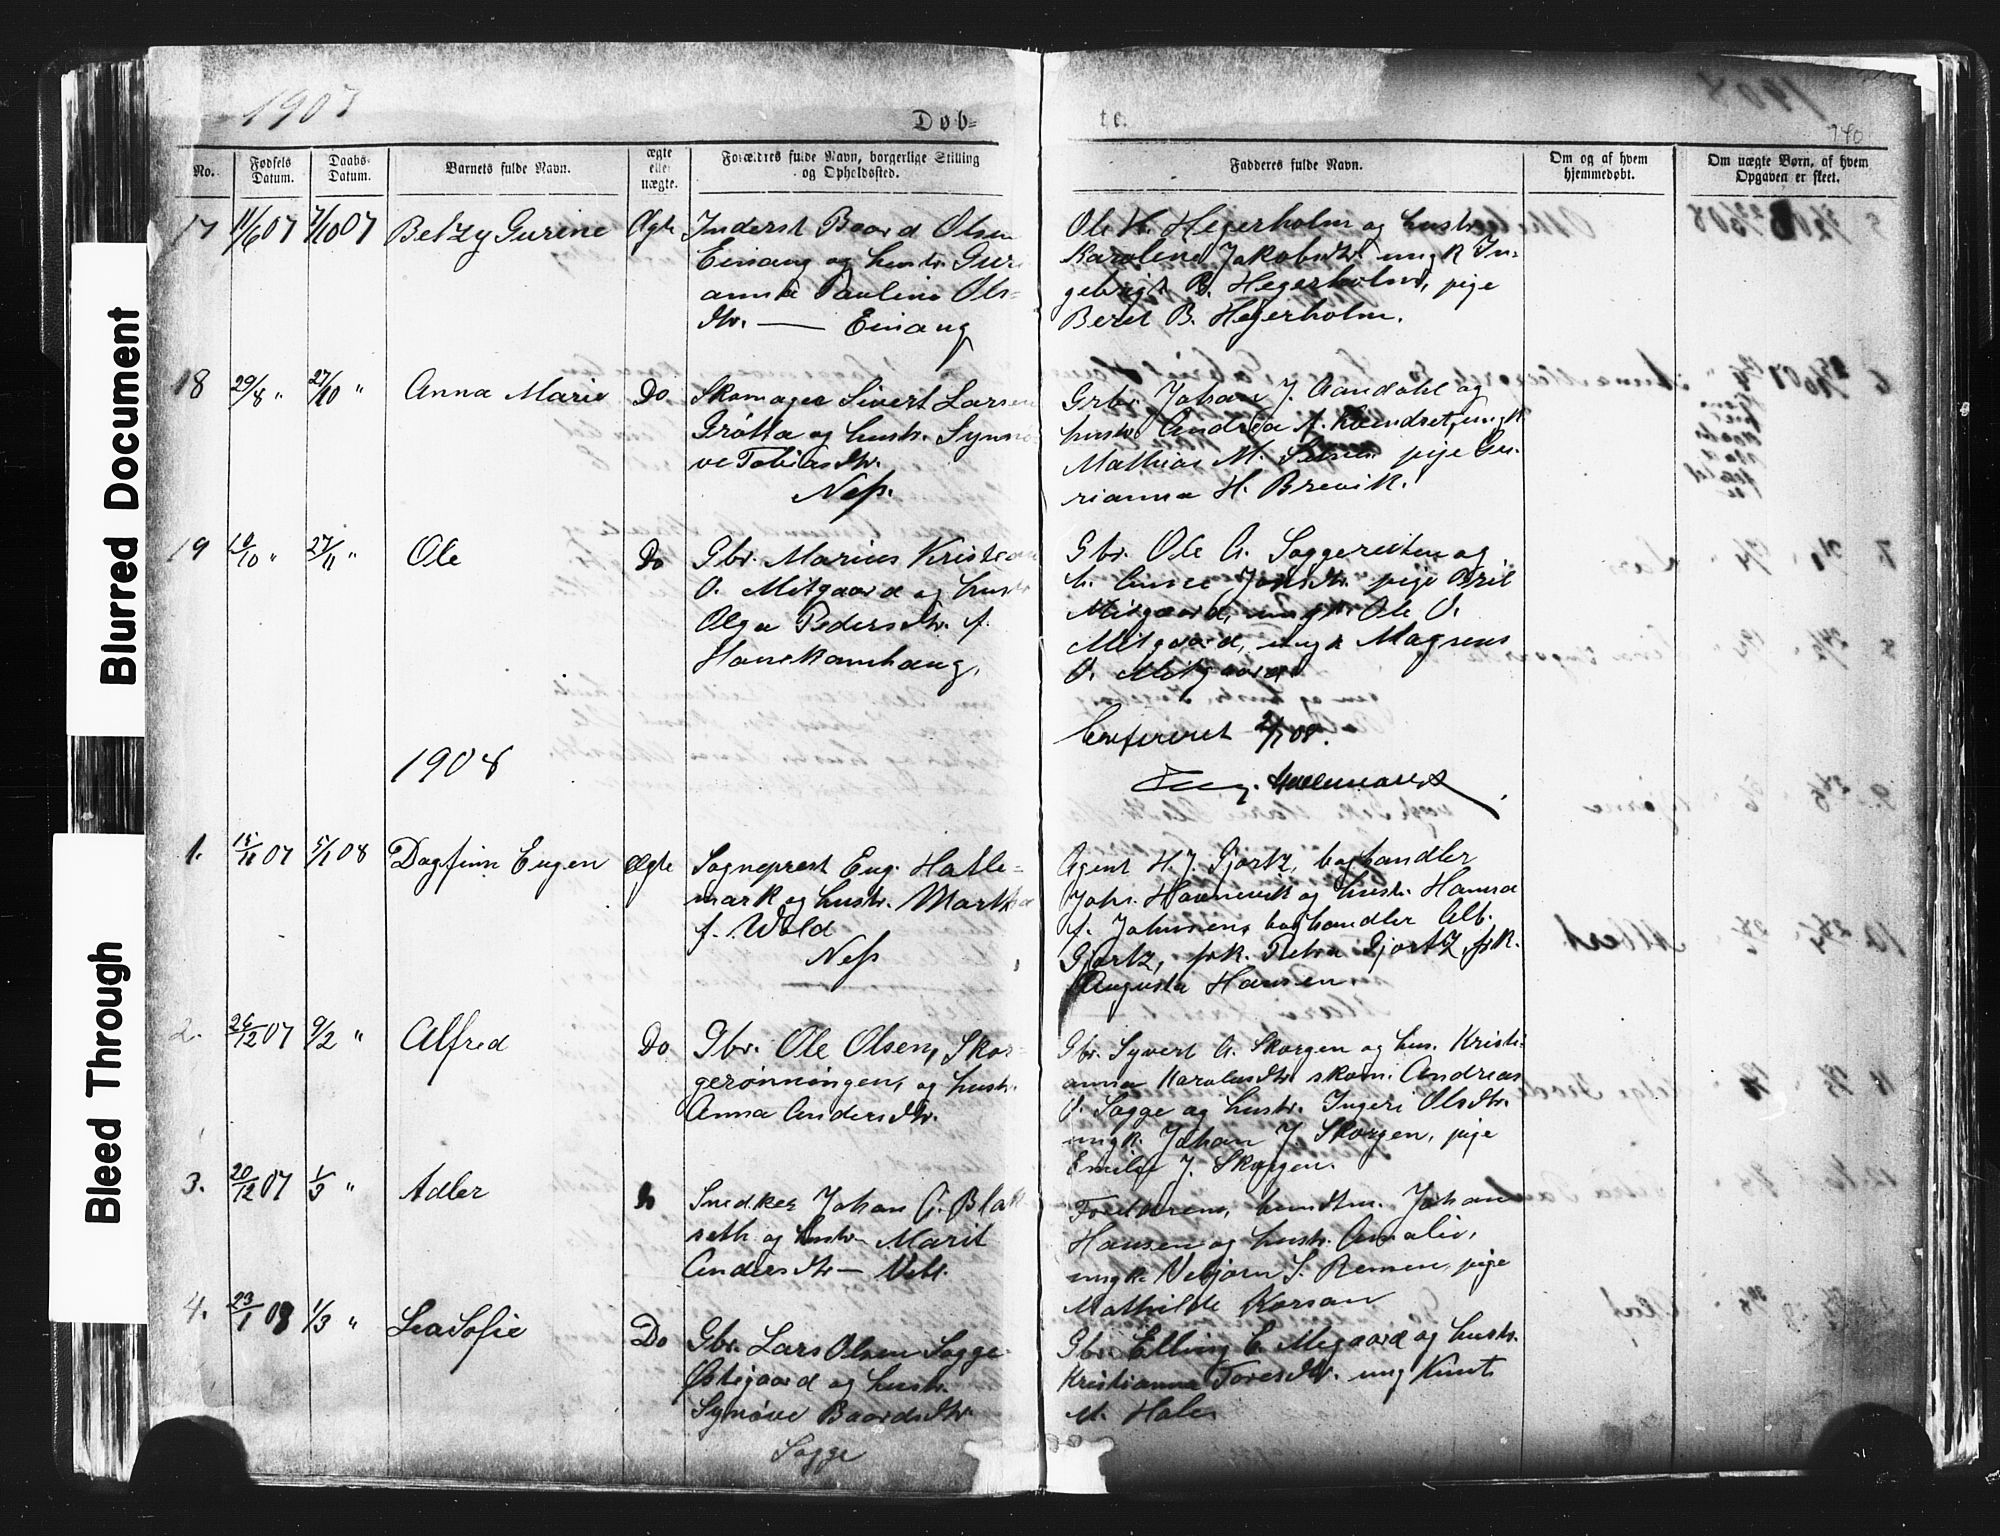 Blurred Document
Bleed Through
1907
Døb-
te.
140
No.
Fødsels Datum.
Daabs- Datum.
Barnets fulde Navn.
ægte eller uægte.
Forældres fulde Navn, borgerlige Stilling og Opholdssted.
Fadderes fulde Navn.
Om og af hvem hjemmedøbt.
Om uægte Børn, af hvem Opgaven er skeet.
17 11/6 07 7/10 07 Betzy Gurine Ægte
Inderst Baard Olsen
Einang og hustr. Guri
anna Pauline Ols-
dtr. — Einang
Ole H. Hegerholm og hustr.
Karoline Jakobsdtr. ungk In-
gebrigt B. Hegerholm, pige
Beret B. Hegerholm.
18 29/8 " 27/10 " Anna Marie Do
Skomager Sivert Larsen
Grøtta og hustr. Synnø
ve Tobiasdtr.
Nes.
Grbr. Johan J. Aandahl og
hustr. Andrea f. ungk
Mathias M. pige Gu-
rianna H. Brevik.
19 10/10 " 27/11 " Ole Do
Gbr. Marius Kristian
O. Mitgaard og hustr
Olga Pedersdtr. f.
Hanekamhaug.
Gbr. Ole A. Soggeresten og
h. Jonsdtr. pige Brit
Mitgaard, ungk. Ole O.
Mitgaard, ungk Magnus
O. Mitgaard
Confereret 2/1 08.
Eug. Hatlemark
1908
1. 15/11 07 5/1 08 Dagfinn Eugen Ægte
Sogneprest Eug. Hatle-
mark og hustr. Martha
f. Wold
Nes
Agent H. J. Gjørtz, boghandler
Johs. Havnevik og hustr. Hanna
f. Johnsen, boghandler Alb.
Gjørtz, frk. Petra Gjørtz, frk.
Augusta Hansen.
2. 26/12 07 9/2 " Alfred Do
Gbr. Ole Olsen, Skor-
gerønningen, og hustr.
Anna Andersdtr.
Gbr. Syvert A. Skorgen og hus. Kristi-
anna Karolusdtr. skom. Andreas
O. Sogge og hustr. Ingeri Olsdtr.
ungk. Johan J. Skorgen, pige
Emilie J. Skorgen.
3. 20/12 07 1/3 " Adler Do
Snedker Johan A. Blak
seth og hustr. Marit
Andersdtr — Veb.
Forældrene, Johan
Hansen og hustr. Amalie,
ungk. Vebjørn S. Remen, pige
Mathilde Korsan
4. 23/1 08 1/3 " Lea Sofie Do
Gbr. Lars Olsen Sogge
Østigaard og hustr.
Synøve Baardsdtr.
Sogge
Gbr. Elling E. Megaard og hustr.
Kristianna Toresdtr. ung Knut
M. Hole